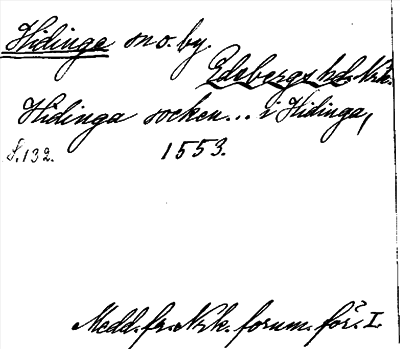 Hidinge sn o. by.
Edsbergs hd. Nrk.
Hidinga socken... i Hidinga,
S. 132. 1553.
Medd. fr. Nrk. fornm. för. I